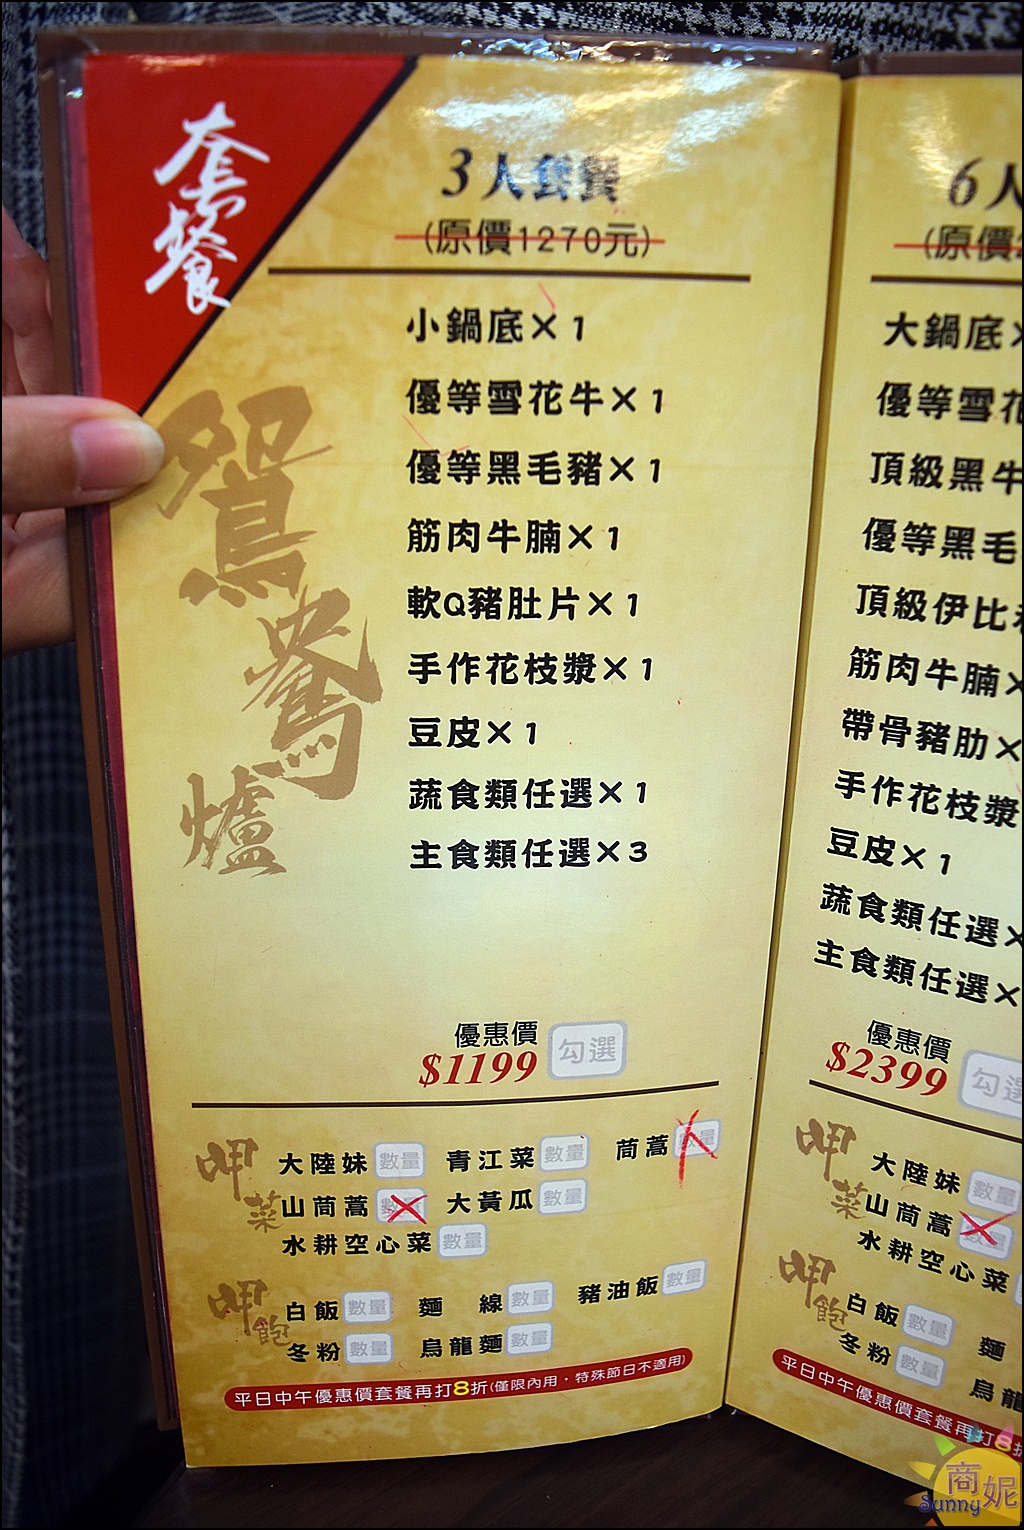 套餐
鴛鴦爐
3人套餐
(原價1270元)
小鍋底×1
優等雪花牛×1
優等黑毛豬×1
筋肉牛腩×1
軟Q豬肚片×1
手作花枝漿×1
豆皮×1
蔬食類任選×1
主食類任選×3
優惠價
$1199 勾選
呷菜
大陸妹 數量 青江菜 數量 茼蒿 數量
山茼蒿 數量 大黃瓜 數量
水耕空心菜 數量
呷飽
白飯 數量 麵 線 數量 豬油飯 數量
冬粉 數量 烏龍麵 數量
平日中午優惠價套餐再打8折(僅限內用・特殊節日不適用)
6人
(原價
大鍋底×
優等雪花
頂級黑牛
優等黑毛
頂級伊比
筋肉牛腩×
帶骨豬肋×
手作花枝漿
豆皮×1
蔬食類任選×
主食類任選×
優惠價
$2399 勾選
呷菜
大陸妹 數量
山茼蒿
水耕空心菜
呷飽
白飯 數量 麵
冬粉 數量 烏龍
平日中午優惠價套餐再打8折
商妮
Sunny